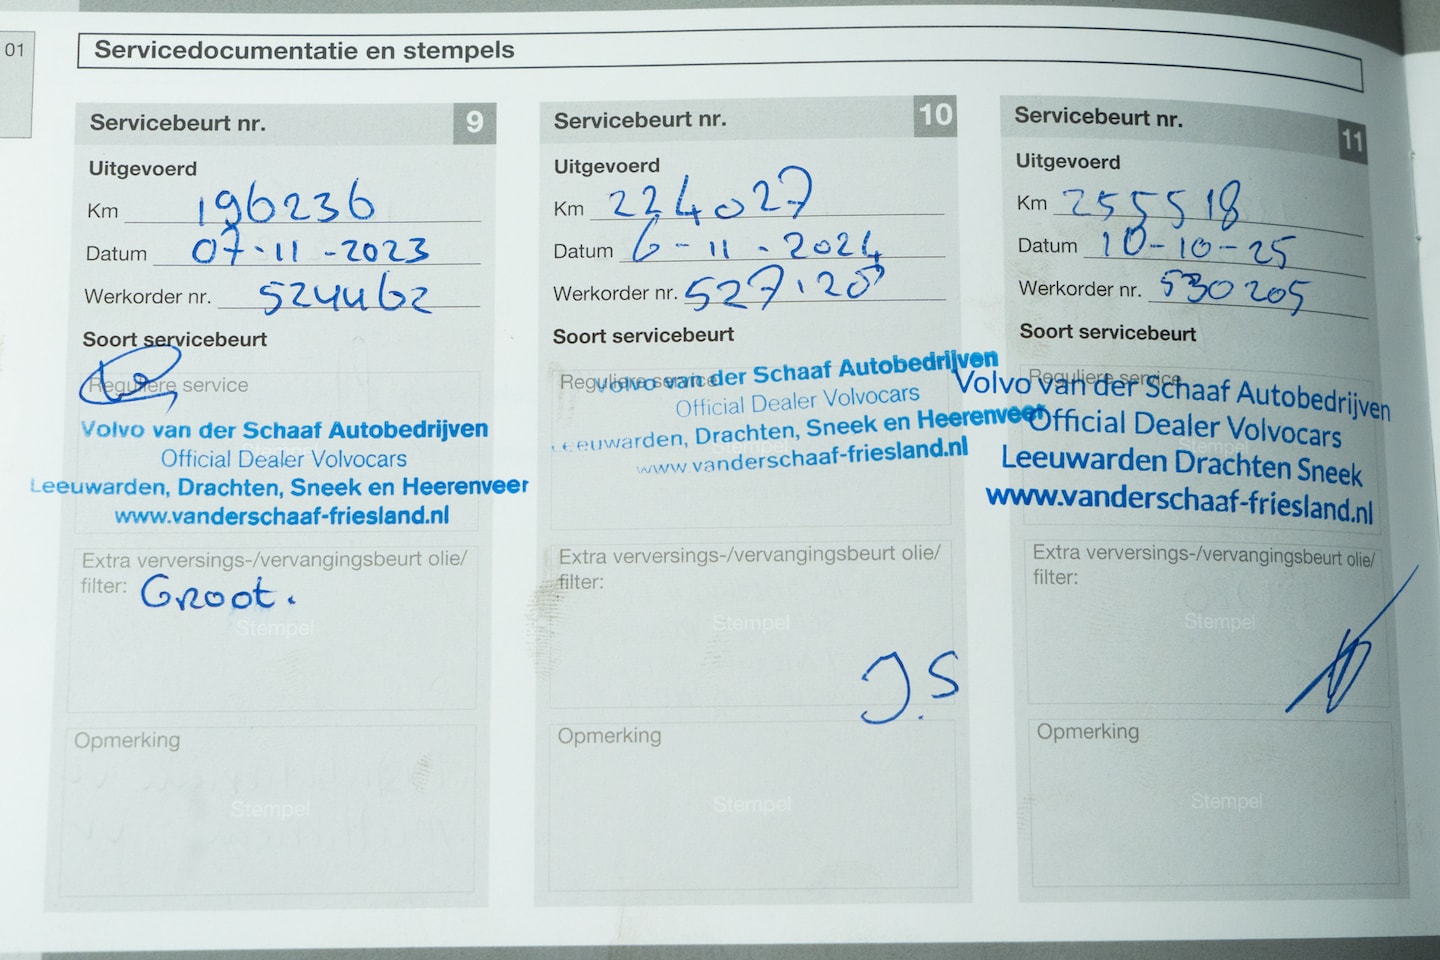 01
Servicedocumentatie en stempels
Servicebeurt nr. 9
Uitgevoerd
Km 196236
Datum 07-11-2023
Werkorder nr. 524462
Soort servicebeurt
Reguliere service
Volvo van der Schaaf Autobedrijven
Official Dealer Volvocars
Leeuwarden, Drachten, Sneek en Heerenveer
www.vanderschaaf-friesland.nl
Extra verversings-/vervangingsbeurt olie/
filter: Groot.
Stempel
Opmerking
Stempel
Servicebeurt nr. 10
Uitgevoerd
Km 224027
Datum 6-11-2024
Werkorder nr. 527120
Soort servicebeurt
Reguliere service
Volvo van der Schaaf Autobedrijven
Official Dealer Volvocars
Leeuwarden, Drachten, Sneek en Heerenveer
www.vanderschaaf-friesland.nl
Extra verversings-/vervangingsbeurt olie/
filter:
Stempel
J.S
Opmerking
Stempel
Servicebeurt nr. 11
Uitgevoerd
Km 255518
Datum 10-10-25
Werkorder nr. 530205
Soort servicebeurt
Reguliere service
Volvo van der Schaaf Autobedrijven
Official Dealer Volvocars
Leeuwarden Drachten Sneek
www.vanderschaaf-friesland.nl
Extra verversings-/vervangingsbeurt olie/
filter:
Stempel
Opmerking
Stempel